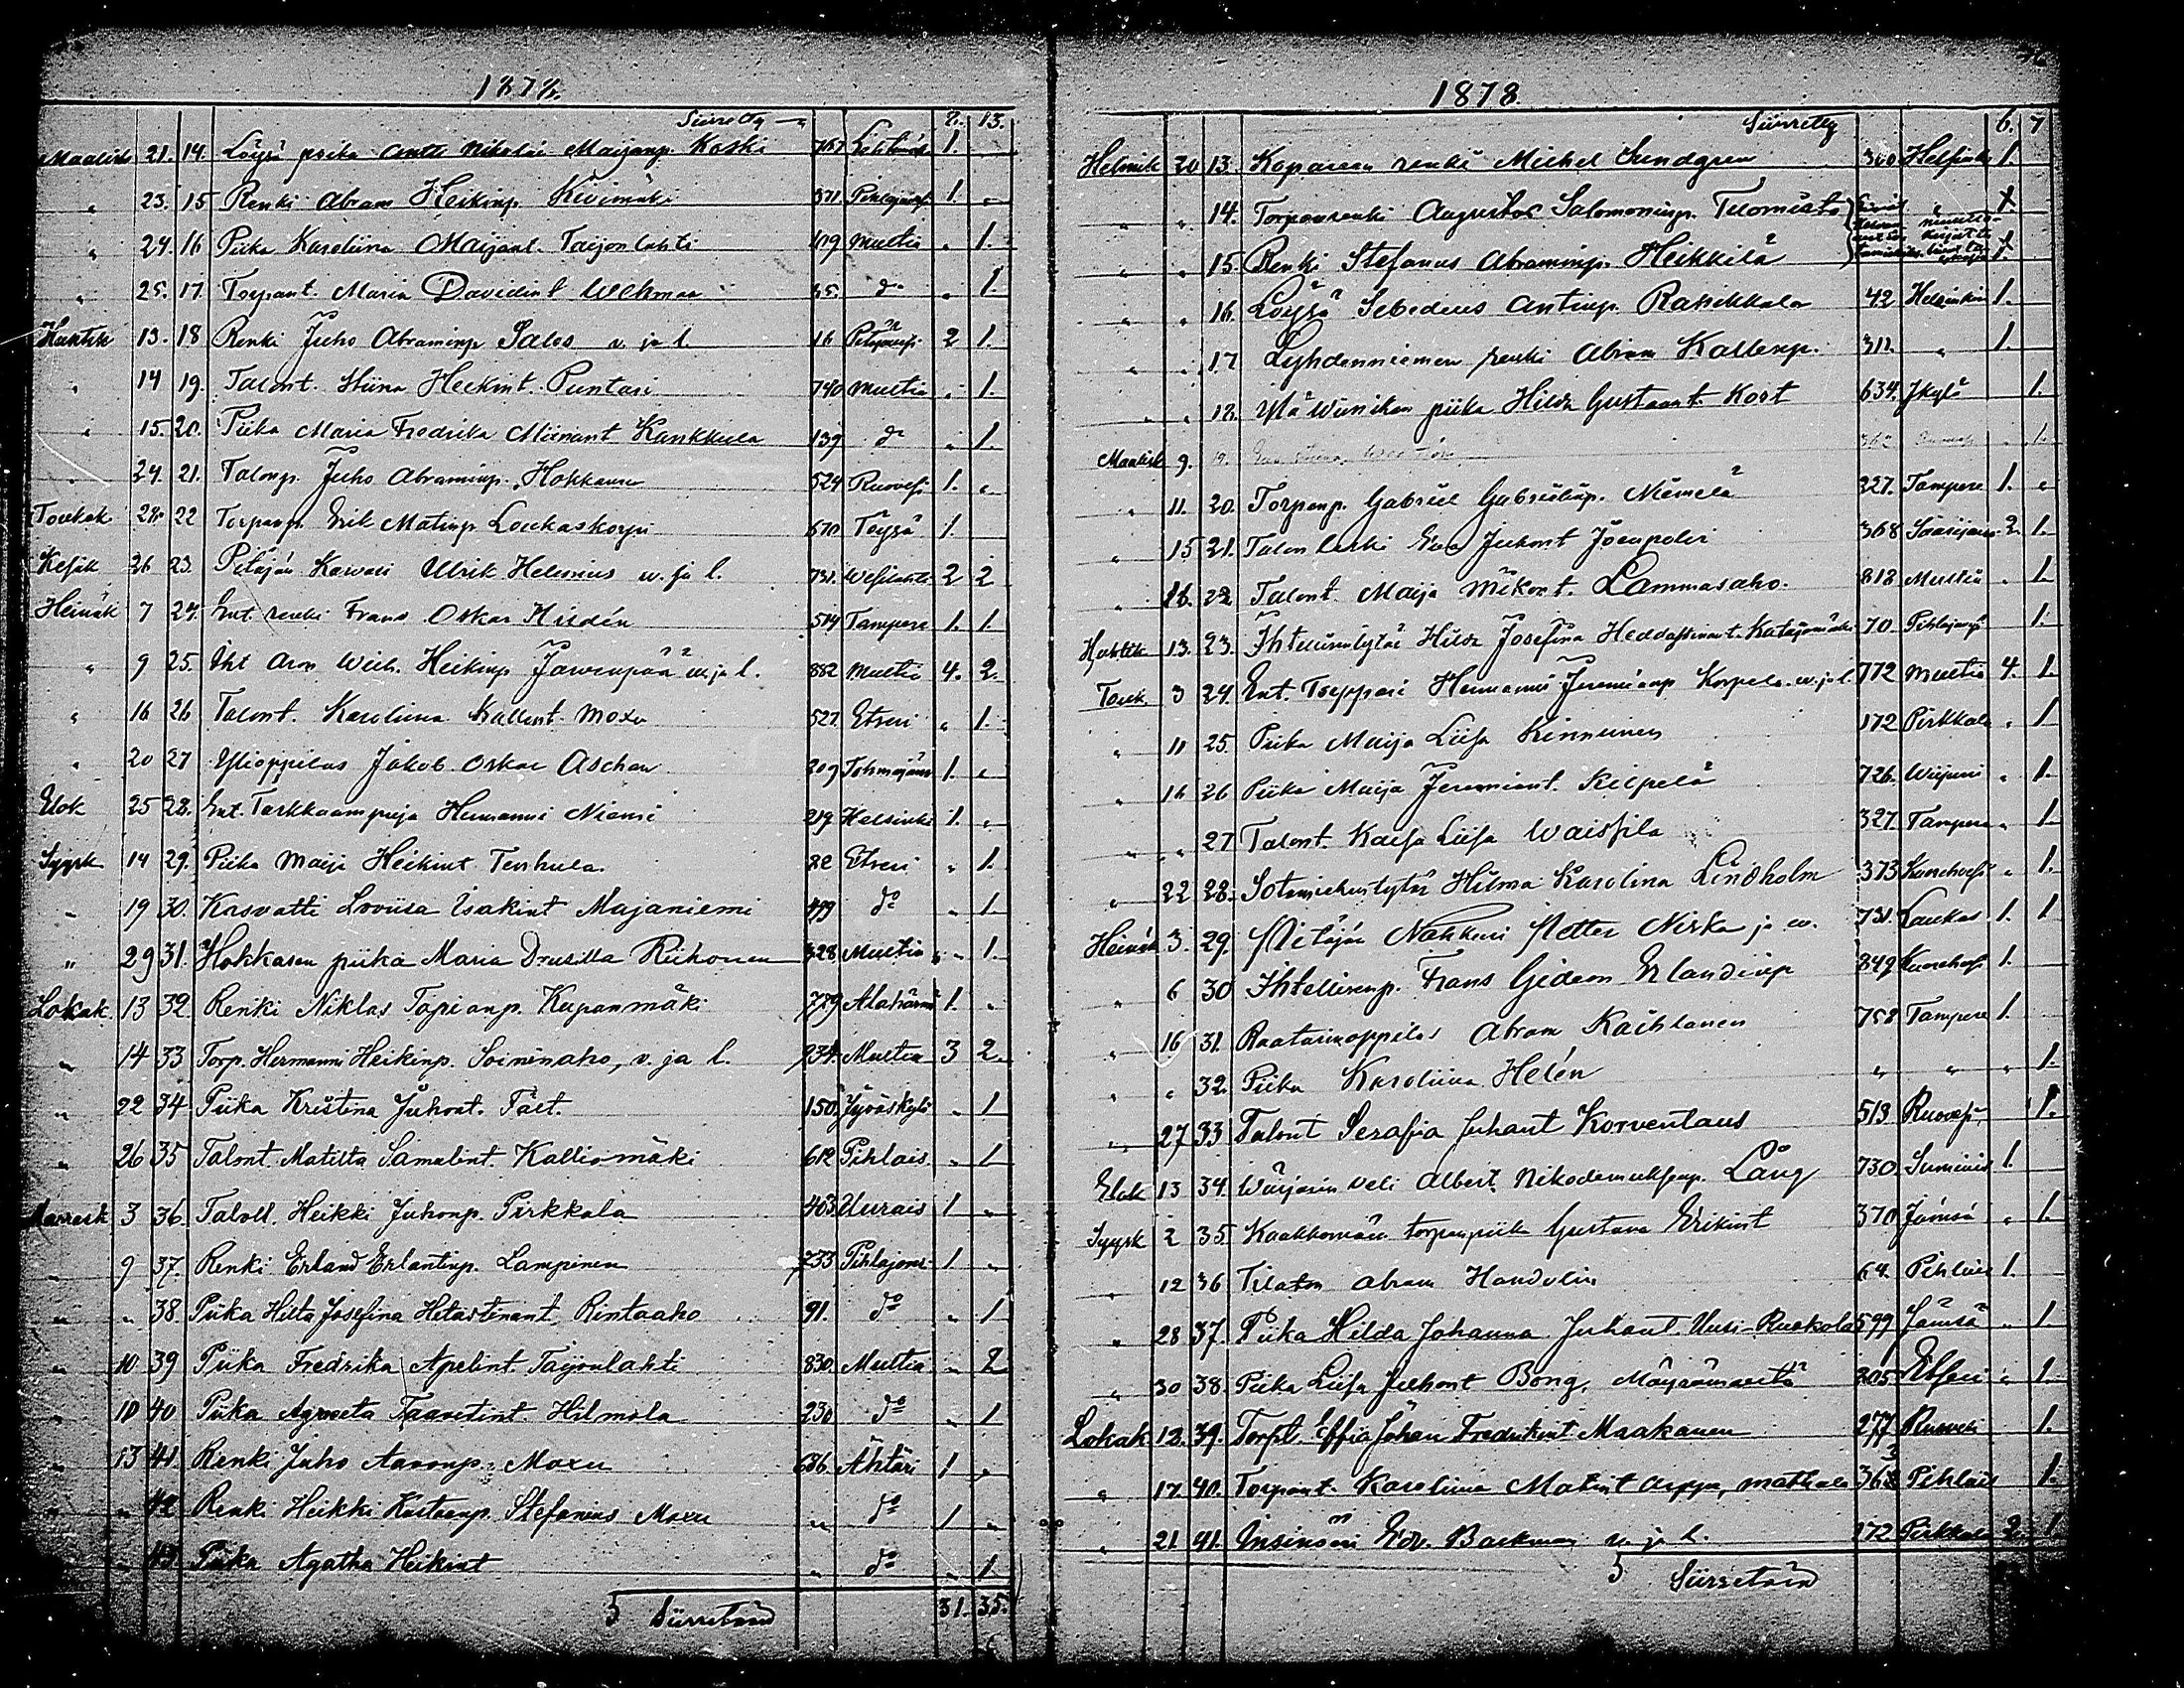 1878.
Siirretty 7. 13.
Maalisk 21. 14. Löysä poika Antti Nikolai Maijanp. Koski 767 1.
" 23. 15 Renki Abram Heikinp. Kivimäki 371 Pihlajaves. 1. "
" 24. 16 Piika Karoliina Maijant. Taijonlahti 419 Multia " 1.
" 25. 17 Torpant. Maria Davidint Uchmaa 35. do " 1
Huhtik 13. 18 Renki Juho Abraminp Salos v. ja l. 16 2 1.
" 14 19. Talont. Stiina Heikint. Puntasi 740 Multia " 1.
" 15. 20. Piika Maria Fredrika Kankkula 139 do " 1.
" 24. 21. Talonp. Juho Abraminp. Hokkanen 524 Ruovesi 1. "
Toukok 28. 22 Torpanp. Erik Matinp. Loukaskorpi 670 Töysä 1.
Kesäk 26 23. Pitäjän Karvari Ulrik Helenius v. ja l. 731. Wesilahti 2 2
Heinäk 7 24. Ent. renki Frans Oskar Hildén 514 Tampere 1. 1
" 9 25. Iht Aron Heikinp Järvenpää v. ja l. 882 Multia 4. 2.
" 16 26 Talont. Karoliina Kallent. Moxu 527. Etseri " 1.
" 20 27 Ylioppilas Jakob Oskar Aschan 209 Tohmajärvi 1. "
Elok 25 28. Ent. Tarkkaampuja Hermanni Niemi 219 Helsinki 1. "
Syysk 14 29. Piika Maija Heikint Tenhula 82 Etseri " 1.
" 19 30. Kasvatti Loviisa Isakint Majaniemi 499 do " 1
" 29 31. Hokkasen piika Maria Drusilla Riihonen 328 Multia " 1.
Lokak 13 32. Renki Niklas Tapianp. Kupanmäki 779 Alahärmä 1. "
" 14 33 Torp. Hermanni Heikinp. Soininaho, v. ja l. 234. Multia 3 2.
" 22 34 Piika Kristina Juhont. Fält. 150. Jyväskylä " 1
" 26 35 Talont. Matilta Samulint. Kalliomäki 612 Pihlais. " 1
Marrask 3 36. Taloll. Heikki Juhonp. Pirkkala 403 Uurais 1 "
" 9 37. Renki Erland Erlantinp. Lampinen 233 Pihlajav. 1 "
" " 38. Piika Hilta Josefina Rintaaho 91. do " 1
" 10 39 Piika Fredrika Apelint. Taijonlahti 830. Multia " 2
" 10 40 Piika Agneeta Taavetint. Hilmola 230 do " 1
" 13 41. Renki Juho Aaronp. Moxu 686. Ähtäri 1 "
" " 42 Renki Heikki Kustaanp. Stefanius Moxu " do 1 "
" " 43. Piika Agatha Heikint " do " 1
Siirretään 31. 35.
1878
Siirretty 6. 7
Helmik 20 13. Koparsen renki Michel Sundgren 300 Helsinki 1.
" " 14. Torpanrenki Augustus Salomoninp. Tuomisto 1.
" " 15. Renki Stefanus Abraminp. Heikkilä 1.
" " 16. Löysä Sebedeus Antinp. Ranikkala 42 Helsinkiin 1.
" " 17 Lyhdenniemen renki Abram Kallenp. 311. " 1
" " 18. Ylä Wiinikan piika Hilda Gustaant. Kort 634. Jkylä 1.
Maalisk 9. 19. 362 " 1.
" 11. 20. Torpanp. Gabriel Gabrielinp. Niemelä 227. Tampere 1. "
" 15 21. Talon leski Eva Juhont Joenpolvi 368 Soinijärvi 2. 1.
" 16. 22 Talont. Maija Mikont. Lammasaho. 818 Multia " 1
Huhtik 13. 23. Ihtellisentytär Hilda Josefina Katajamäki 70. Pihlajaves 1.
Touk 3 24. Ent. Torppari Hermanni Jeremianp Korpela v. ja l. 772 Multia 4. 1.
" 11 25. Piika Maija Liisa Kinnunen 172 Pirkkala " 1
" 16 26 Piika Maija Jeremiant. Kilpelä 726. Wiipuri " 1.
" " 27 Talont. Kaisa Liisa Waissila 327. Tampere " 1
" 22 28. Sotamiehentytär Hilma Karolina Lindholm 373 Kuorehvesi " 1.
Heinäk 3. 29. Pitäjän Nahkuri Petter Niska ja v. 731. Laukas 1. 1
" 6 30 Ihtellisenp. Frans Gideon Erlandinp 849 Kuorehvesi 1.
" 16 31. Raatarinoppilas Abram Kaihlanen 758 Tampere 1.
" " 32. Piika Karoliina Helén " " " 1.
" 27 33 Talont Serafia Juhant Korventaus 513 Ruovesi 1.
Elok 13 34. Wärjärin veli Albert Nikodemuksenp. Lång 730. Suminis 1.
Syysk 2 35. Kaakkomäen torpanpiika Gustava Erikint 370 Jämsä " 1.
" 12 36 Tilaton Abram Handolin 64. Pihlais 1.
" 28 37. Piika Hilda Johanna Juhant. Uusi-Ruokola 599 Jämsä " 1
" 30 38. Piika Liisa Juhont Bong, 205 Etseri " 1.
Lokak 12. 39. Torpt. Effia Johan Fredrikint Maakanen 277 Ruovesi 1.
" 17 40. Torpant. Karoliina Matint Arppe, matkala 368 3 Pihlais 1.
" 21. 41. Insinööri Edv. Backman v. ja l. 272 Pirkkala 2. 1
Siirretään